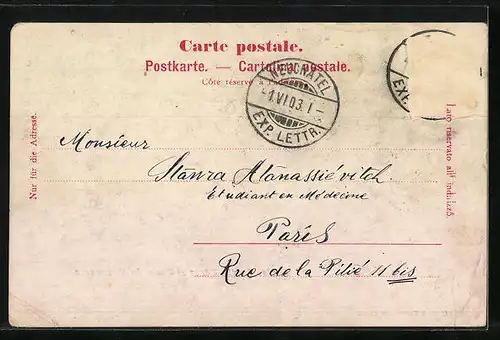 Carte postale.
Postkarte. — Cartolina postale.
Côte réservé à l'adresse.
NEUCHATEL
-1.VI.03.I-
EXP. LETTR.
EXP.
Nur für die Adresse.
Lato riservato all' indirizzo.
Monsieur
Stanra Atanassiévitch
Etudiant en Médecine
Paris
Rue de la Pitié 11 bis